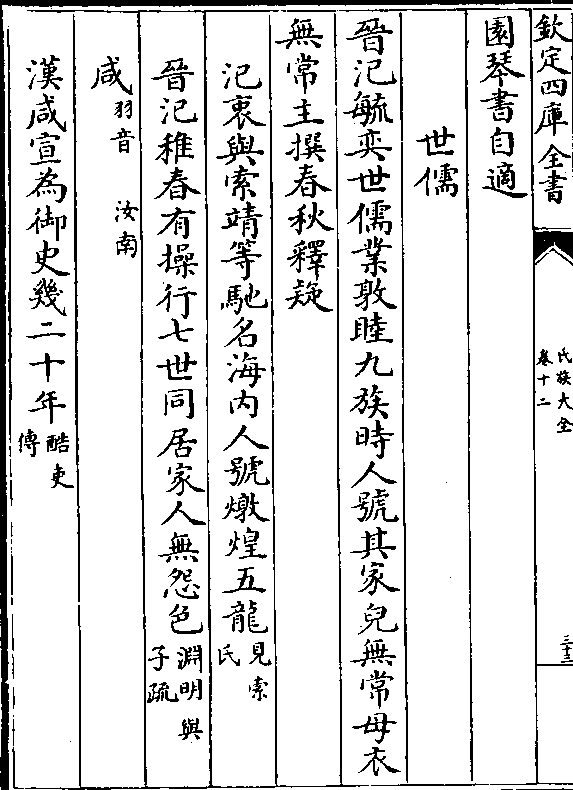 欽定四庫全書
氏族大全
卷十二
三十三
園琴書自適
世儒
晉汜毓奕世儒業敦睦九族時人號其家兒無常母衣
無常主撰春秋釋疑
汜衷與索靖等馳名海内人號燉煌五龍見索氏
晉汜稚春有操行七世同居家人無怨色淵明與子疏
咸羽音 汝南
漢咸宣為御史幾二十年酷吏傳